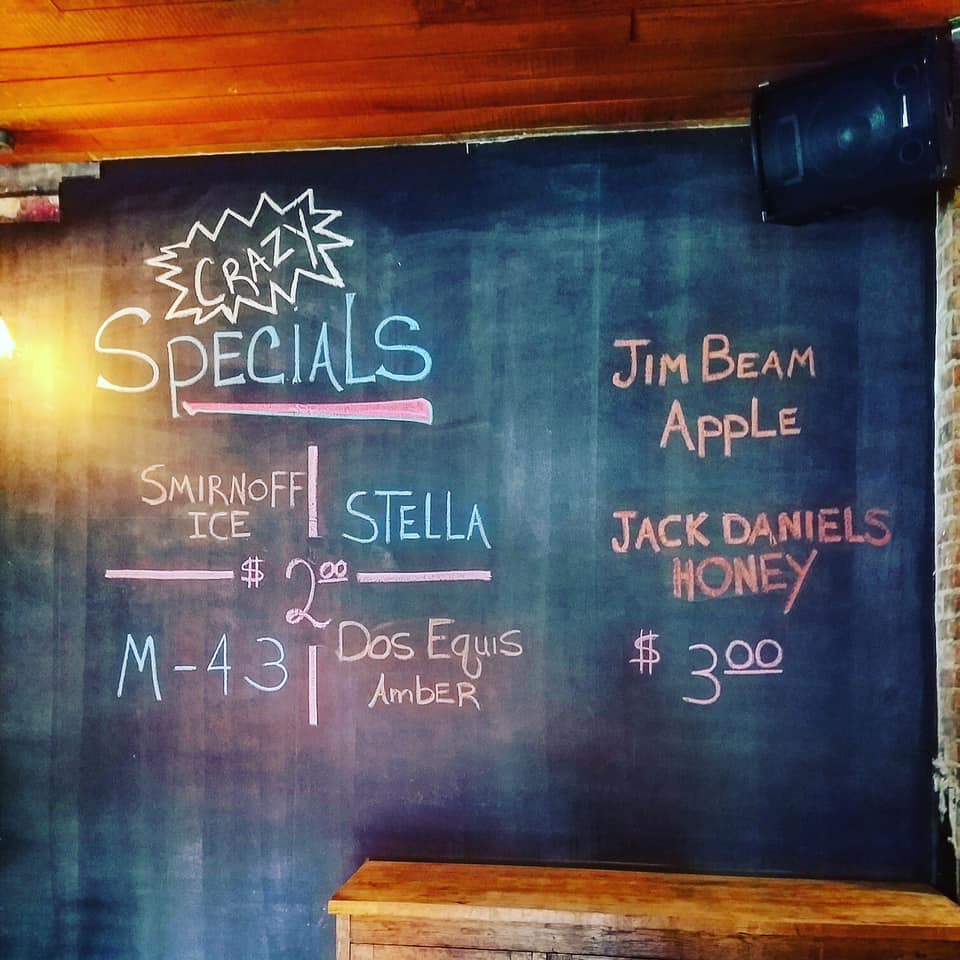 CRAZY
SPECIALS
SMIRNOFF
ICE
STELLA
$ 2.00
M-43
DOS EQUIS
AMBER
JIM BEAM
APPLE
JACK DANIELS
HONEY
$ 3.00